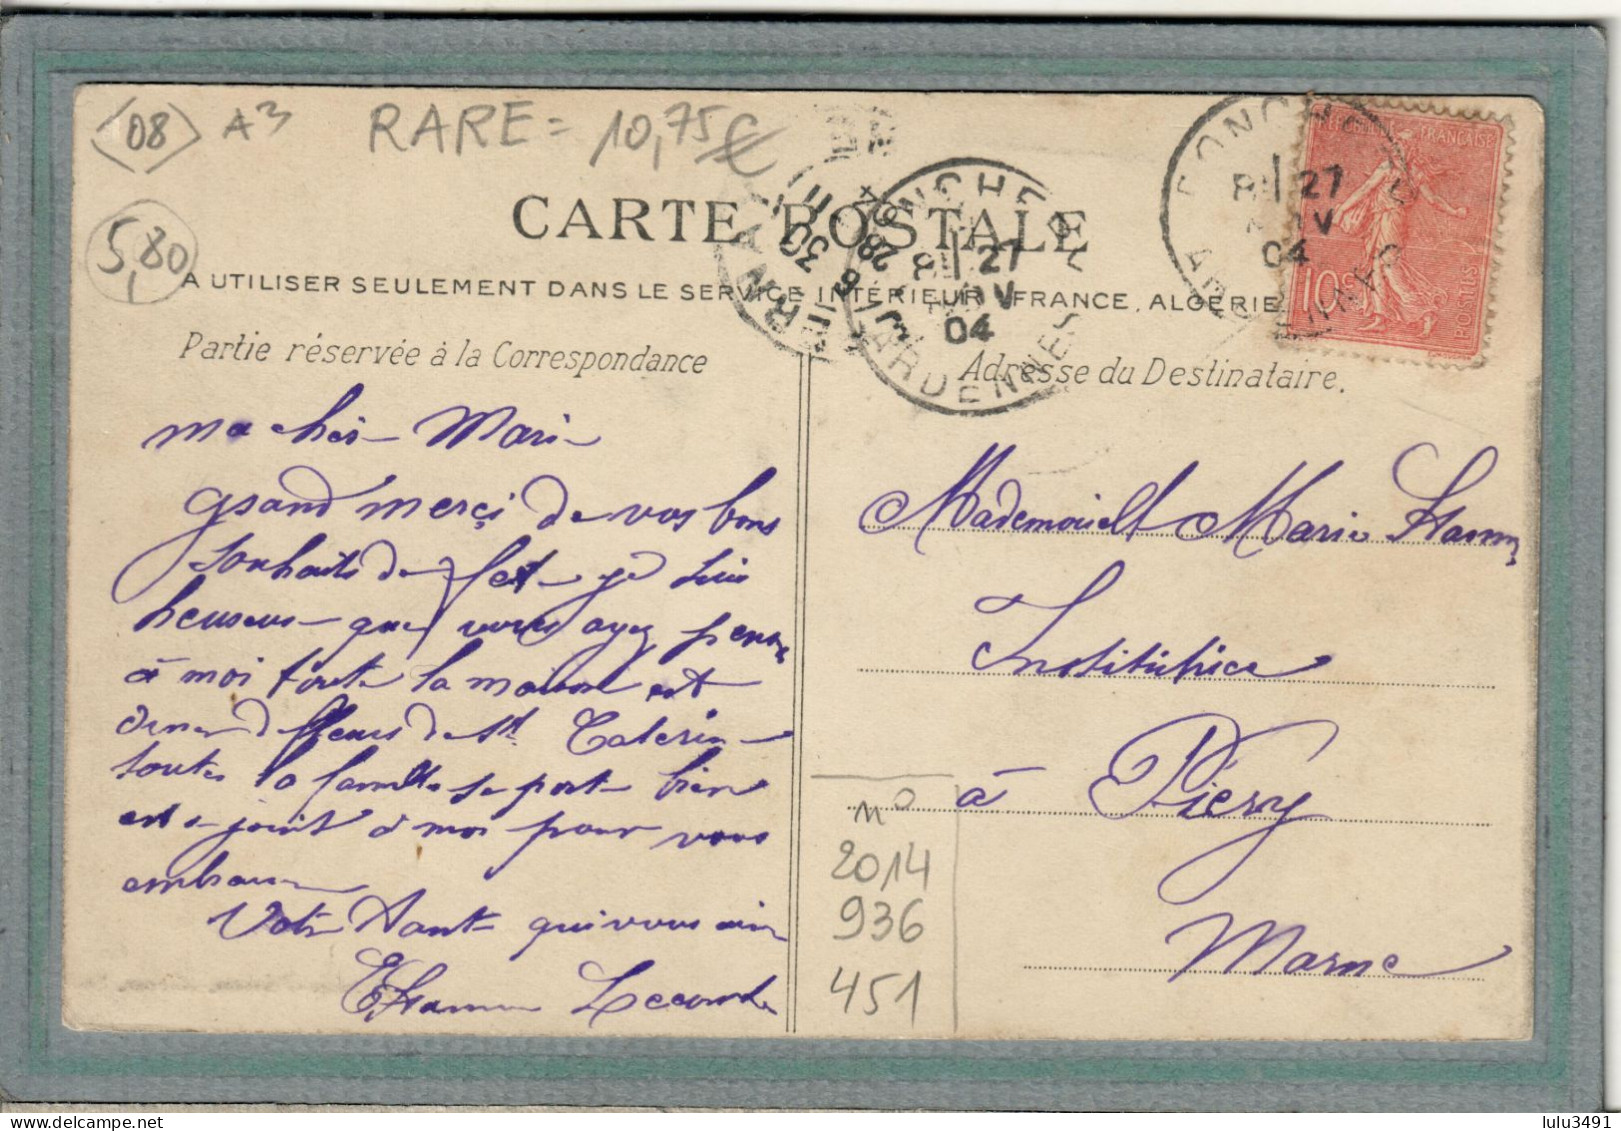 08 A3 RARE = 10,75€
5,80
CARTE POSTALE
A UTILISER SEULEMENT DANS LE SERVICE INTÉRIEUR FRANCE, ALGÉRIE
Partie réservée à la Correspondance
Adresse du Destinataire.
RÉPUBLIQUE FRANÇAISE
10c POSTES
27 NOV 04
ARDENNES
ma cher Mari
grand merci de vos bons
souhaits de fet je suis
heureus que vous ayez pense
à moi toute la maison est
orner de fleurs de St Caterin
toute la famille se port bien
est joint a moi pour vous
embrasser
Votr Tant qui vous aim
Lecomte
Mademoiselt Marie
Institutrice
à Piery
Marne
no
2014
936
451
lulu3491